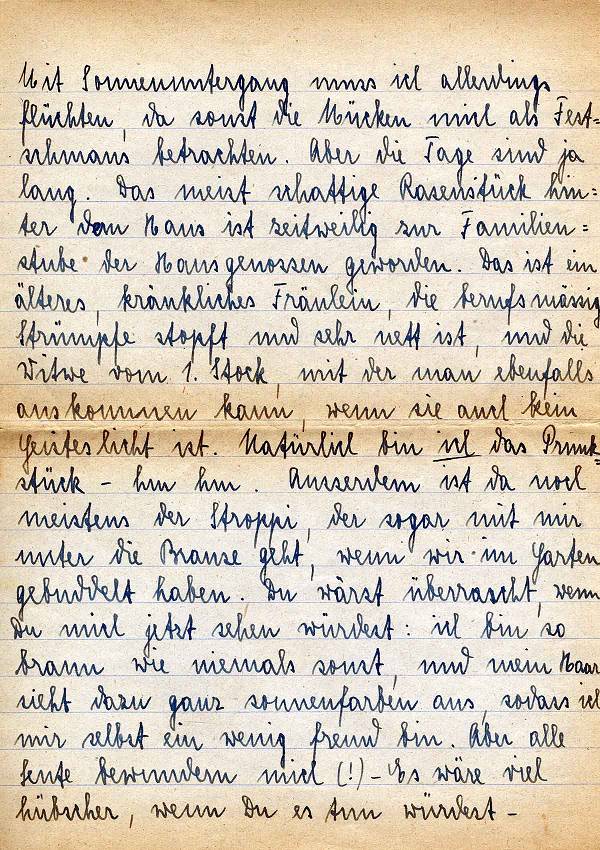 Mit Sonnenuntergang muss ich allerdings
flüchten, da sonst die Mücken mich als Fest-
schmaus betrachten. Aber die Tage sind ja
lang. Das meist schattige Rasenstück hin=
ter dem Haus ist zeitweilig zur Familien=
stube der Hausgenossen geworden. Das ist ein
älteres, kränkliches Fräulein, die berufsmässig
Strümpfe stopft und sehr nett ist, und die
Witwe vom 1. Stock, mit der man ebenfalls
auskommen kann, wenn sie auch kein
Geisteslicht ist. Natürlich bin ich das Prunk-
stück - hm hm. Ausserdem ist da noch
meistens der Stroppi, der sogar mit mir
unter die Brause geht, wenn wir im Garten
gebuddelt haben. Du wärst überrascht, wenn
Du mich jetzt sehen würdest: ich bin so
braun wie niemals sonst, und mein Haar
sieht dazu ganz sonnenfarben aus, sodass ich
mir selbst ein wenig fremd bin. Aber alle
Leute bewundern mich (!) - Es wäre viel
hübscher, wenn Du es tun würdest -